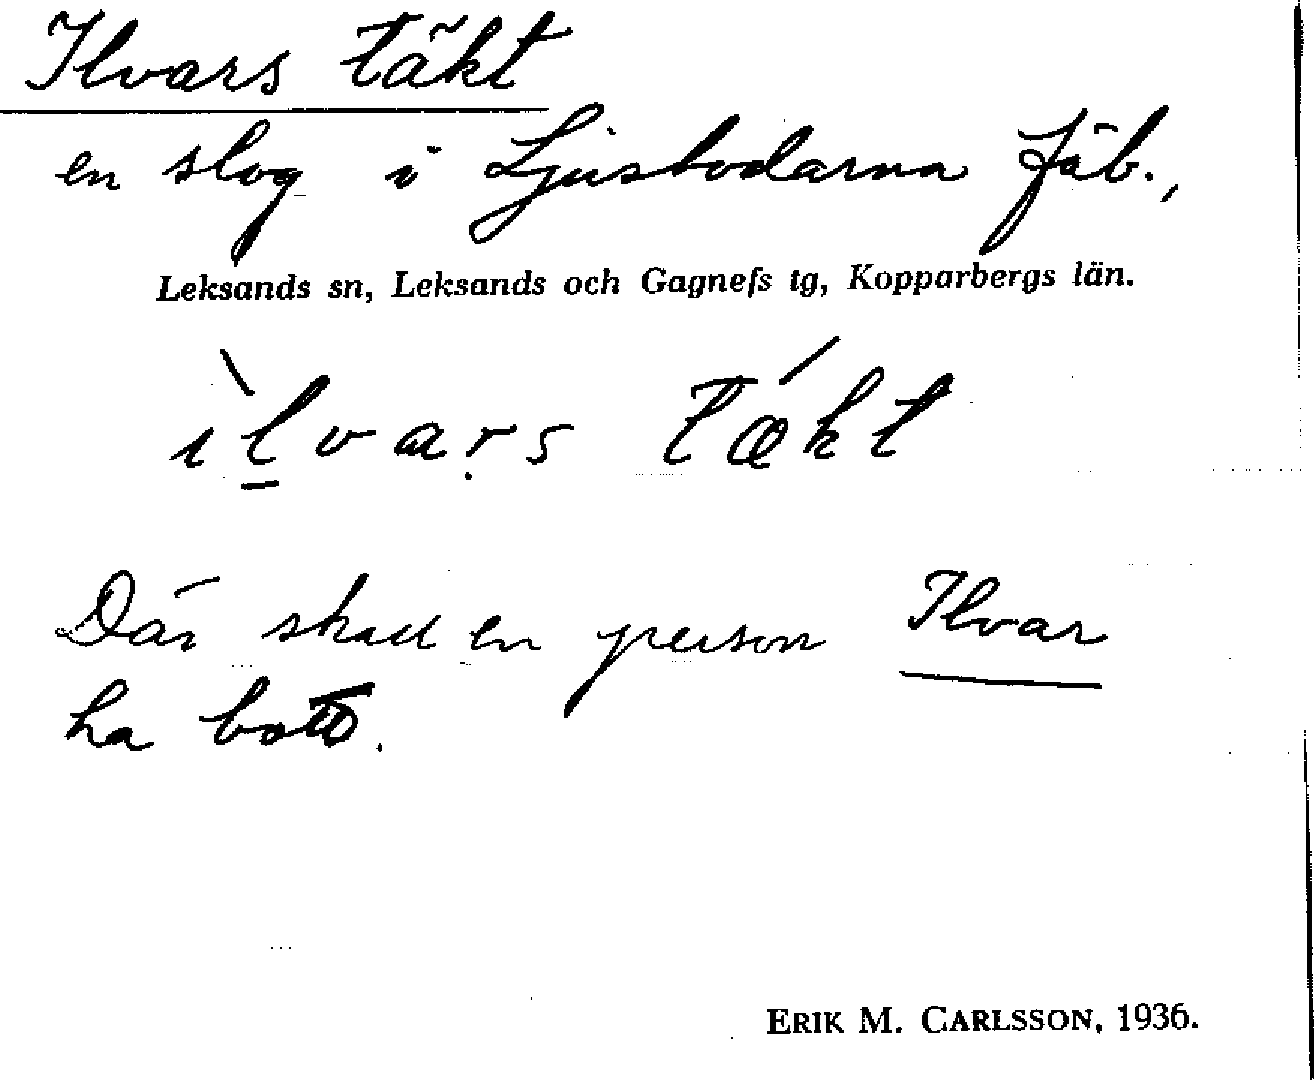 Ilvars täkt
en slog i Ljusbodarna fäb.,
Leksands sn, Leksands och Gagnefs tg, Kopparbergs län.
ìl̠vaṛs tǽkt
Där skall en person Ilvar
ha bott.
ERIK M. CARLSSON, 1936.